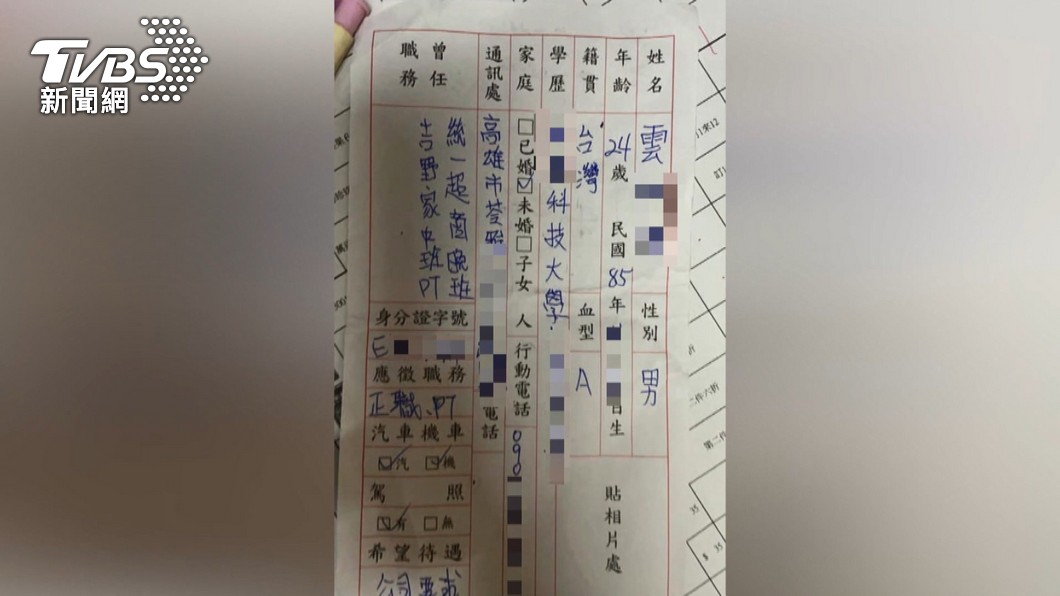 TVBS
新聞網
姓名
雲
性別
男
年齡
24歲
民國85年
日生
籍貫
台灣
血型
A
學歷
科技大學
家庭
□已婚☑未婚□子女 人
行動電話
090
通訊處
高雄市苓雅
電話
曾任職務
統一超商晚班
吉野家中班PT
身分證字號
E
應徵職務
正職、PT
汽車機車
☑汽 ☑機
駕照
☑有 □無
希望待遇
貼相片處